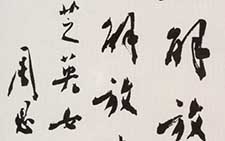 解放
解放
芝英女
周恩